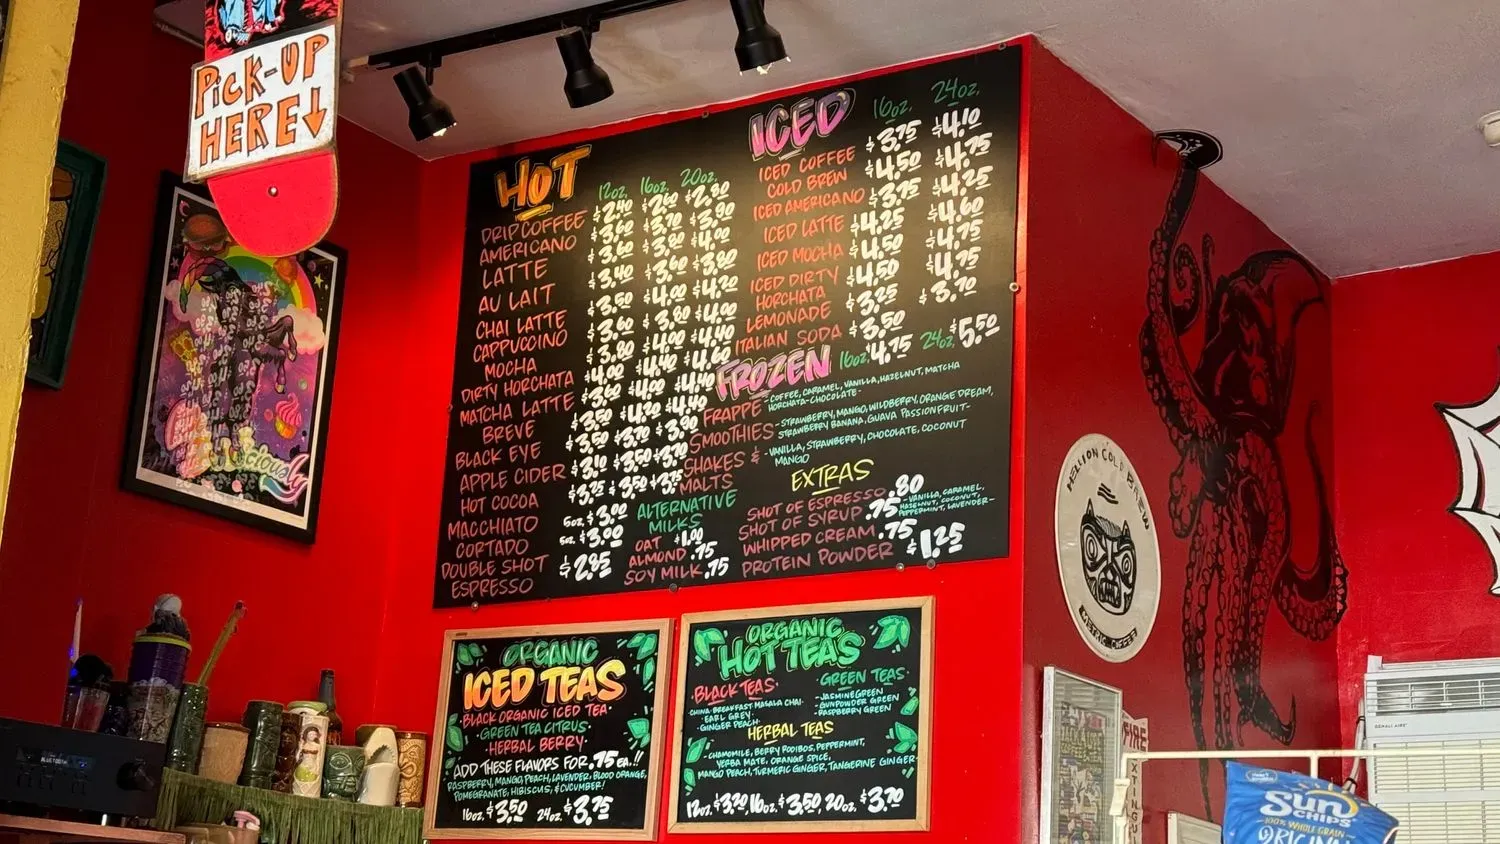 PICK-UP
HERE↓
HOT
12oz. 16oz. 20oz.
DRIP COFFEE $2.40 $2.60 $2.80
AMERICANO $3.60 $3.70 $3.90
LATTE $3.60 $3.80 $4.00
AU LAIT $3.40 $3.60 $3.80
CHAI LATTE $3.50 $4.00 $4.20
CAPPUCCINO $3.60 $3.80 $4.00
MOCHA $3.80 $4.00 $4.40
DIRTY HORCHATA $4.00 $4.40 $4.60
MATCHA LATTE $3.60 $4.00 $4.40
BREVE $3.50 $4.20 $4.40
BLACK EYE $3.50 $3.70 $3.90
APPLE CIDER $3.10 $3.50 $3.70
HOT COCOA $3.75 $3.50 $3.75
MACCHIATO 5oz. $3.00
CORTADO 5oz. $3.00
DOUBLE SHOT
ESPRESSO $2.85
ALTERNATIVE
MILKS
OAT $1.00
ALMOND .75
SOY MILK .75
ICED 16oz. 24oz.
ICED COFFEE $3.75 $4.10
COLD BREW $4.50 $4.75
ICED AMERICANO $3.75 $4.25
ICED LATTE $4.25 $4.60
ICED MOCHA $4.50 $4.75
ICED DIRTY
HORCHATA $4.50 $4.75
LEMONADE $3.25 $3.70
ITALIAN SODA $3.50
FROZEN 16oz. $4.75 24oz. $5.50
FRAPPE - COFFEE, CARAMEL, VANILLA, HAZELNUT, MATCHA
HORCHATA-CHOCOLATE-
SMOOTHIES - STRAWBERRY, MANGO, WILDBERRY, ORANGE DREAM,
STRAWBERRY BANANA, GUAVA PASSIONFRUIT-
SHAKES &
MALTS - VANILLA, STRAWBERRY, CHOCOLATE, COCONUT
MANGO
EXTRAS
SHOT OF ESPRESSO .80
SHOT OF SYRUP .75 -VANILLA, CARAMEL,
HAZELNUT, COCONUT,
PEPPERMINT, LAVENDER-
WHIPPED CREAM .75
PROTEIN POWDER $1.25
ORGANIC
ICED TEAS
·BLACK ORGANIC ICED TEA·
·GREEN TEA CITRUS·
·HERBAL BERRY·
ADD THESE FLAVORS FOR .75 EA.!!
RASPBERRY, MANGO, PEACH, LAVENDER, BLOOD ORANGE,
POMEGRANATE, HIBISCUS, & CUCUMBER!
16oz. $3.50 24oz. $3.75
ORGANIC
HOT TEAS
·BLACK TEAS·
CHINA BREAKFAST MASALA CHAI·
·EARL GREY·
·GINGER PEACH·
GREEN TEAS·
-JASMINE GREEN
-GUNPOWDER GREEN
-RASPBERRY GREEN
HERBAL TEAS
-CHAMOMILE, BERRY ROOIBOS, PEPPERMINT,
YERBA MATE, ORANGE SPICE,
MANGO PEACH, TURMERIC GINGER, TANGERINE GINGER-
12oz. $3.20 16oz. $3.50 20oz. $3.70
HELLION COLD BREW
METRIC COFFEE
FIRE
EXTINGUI
BLUETOOTH
Sun
CHIPS
100% WHOLE GRAIN
ORIGINAL